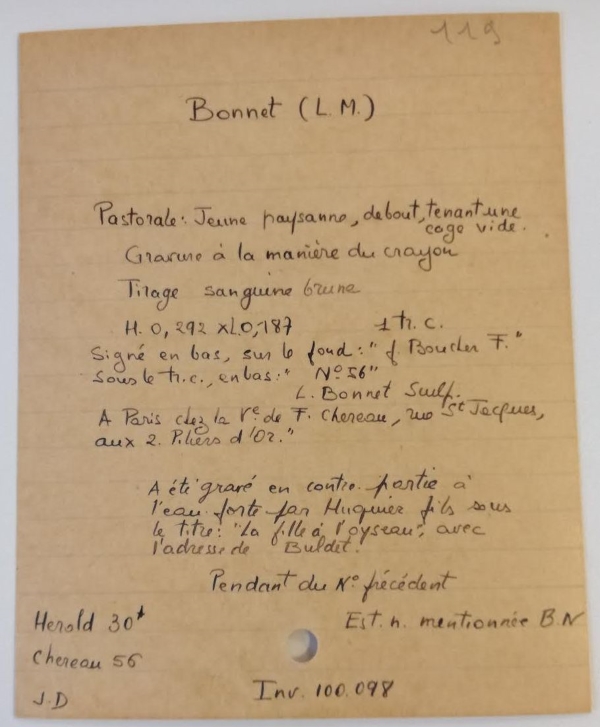 119
Bonnet (L.M.)
Pastorale: Jeune paysanne, debout, tenant une
cage vide.
Gravure à la manière du crayon
Tirage sanguine brune
H. 0,292 x L.0,187 1 tr. c.
Signé en bas, sur le fond: "f. Boucher F."
Sous le tr. c., en bas: "N° 56"
L. Bonnet Sculp.
A Paris chez la Vᵉ de F. Chereau, rue St Jacques,
aux 2. Piliers d'Or."
A été gravé en contre partie à
l'eau forte par Huquier fils sous
le titre: "La fille à l'oyseau", avec
l'adresse de Buldet.
Pendant du N° précédent
Herold 30* Est. n. mentionnée B.N
Chereau 56
J.D Inv. 100.098